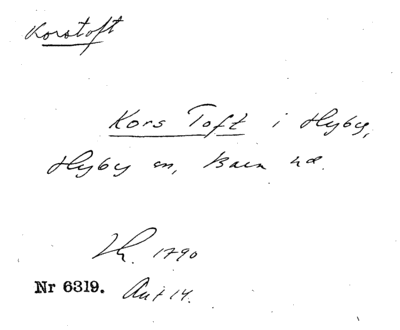 Korstoft
Kors Toft i Hyby,
Hyby sn, Bara hd.
Lh. 1790
Nr 6319. Akt 14.